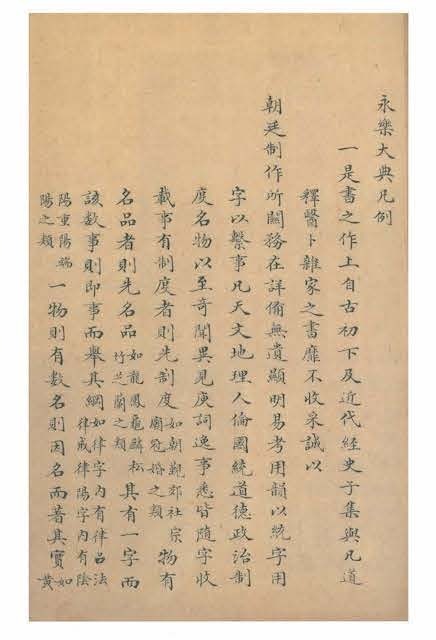 永樂大典凡例
一是書之作上自古初下及近代經史子集與凡道
釋醫卜雜家之書靡不收采誠以
朝廷制作所關務在詳備無遺顯明易考用韻以統字用
字以繫事凡天文地理人倫國統道德政治制
度名物以至奇聞異見庾詞逸事悉皆隨字收
載事有制度者則先制度如朝覲郊社宗廟冠婚之類物有
名品者則先名品如龍鳳龜麟松竹芝蘭之類具有一字而
該數事則即事而舉其綱如律字內有律呂法律戒律陽字內有陰
陽重陽端陽之類一物則有數名則因名而著其實如黄